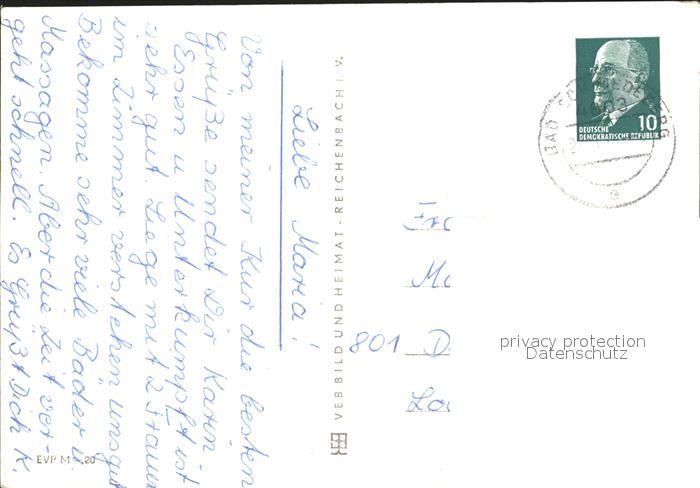 Liebe Maria!
Von meiner Kur die besten
Grüße sendet Dir Karin.
Essen u Unterkumpft ist
sehr gut. Liege mit 2 Frauen
im Zimmer verstehen uns gut
Bekomme sehr viele Bäder u.
Massagen. Aber die Zeit ver-
geht schnell. Es Grüßt Dich K.
EVP M -,20
VEB BILD UND HEIMAT · REICHENBACH I. V.
10
DEUTSCHE
DEMOKRATISCHE REPUBLIK
BAD
801 D
privacy protection
Datenschutz